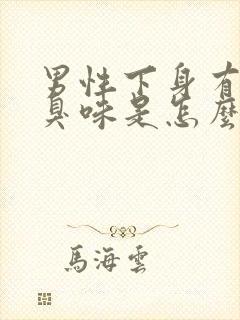 男性下身有
臭味是怎麼
馬海雲